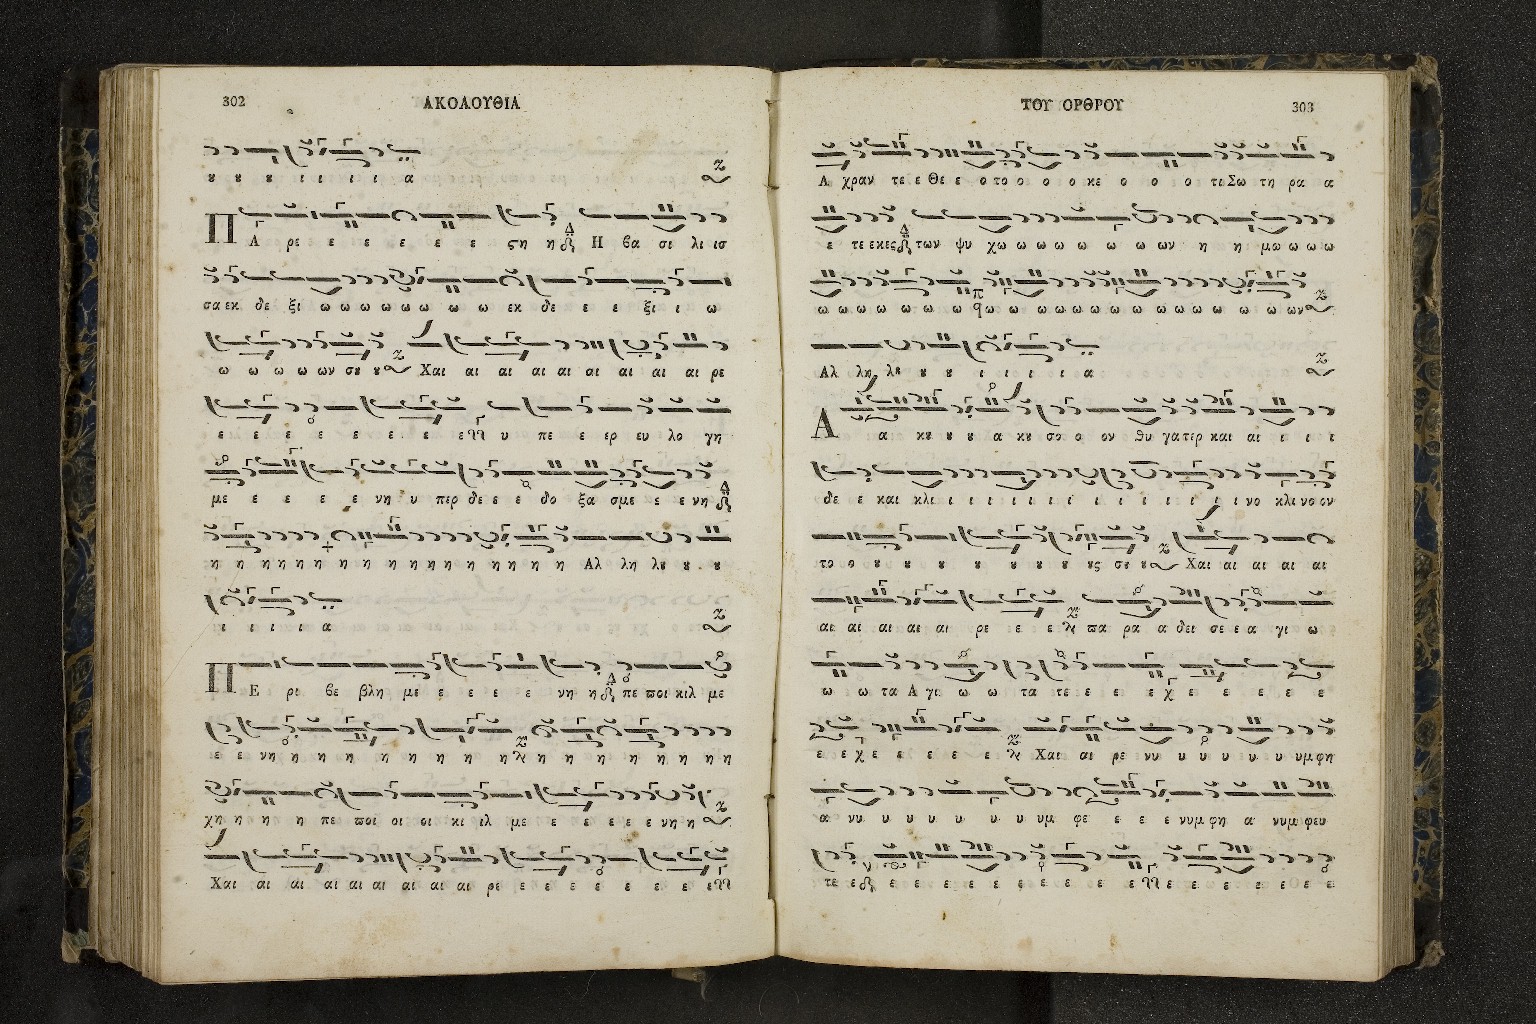 302 ΑΚΟΛΟΥΘΙΑ
ȣ ȣ ȣ ι ι ι ι α
ΠΑ ρε ε ε ε ε ε ε ςη η Η βα σι λι ισ
σα εκ δε ξι ω ω ω ω ω ω ω ω εκ δε ε ε ξι ι ω
ω ω ω ω ων σȣ ȣ Χαι αι αι αι αι αι αι αι αι ρε
ε ε ε ε ε ε ε ε ε υ πε ε ερ ευ λο γη
με ε ε ε ε νη υ περ δε ε ε δο ξα σμε ε ε νη
η η η η η η η η η η η η η η η Αλ λη λȣ ȣ ȣ
ι ι ι ι α
ΠΕ ρι βε βλη με ε ε ε ε νη η πε ποι κιλ με
ε ε νη η η η η η η η η η η η η η η η η
χη η η η πε ποι οι οι κι ιλ με ε ε ε ε ε νη η
Χαι αι αι αι αι αι αι αι αι ρε ε ε ε ε ε ε ε ε
ΤΟΥ ΟΡΘΡΟΥ 303
Α χραν τε ε Θε ε ο το ο ο ο κε ο ο ο τι Σω τη ρα α
ε τε εκες των ψυ χω ω ω ω ω ω ω ων η η μω ω ω ω
ω ω ω ω ω ω ω ω ω ω ω ω ω ω ω ω ω ω ω ων
Αλ λη λȣ ȣ ȣ ι ι ι ι α
Α α κȣ ȣ ȣ α κȣ σο ο ον θυ γα τερ και αι ι ι ι
δε ε και κλι ι ι ι ι ι ι ι ι ι ι ι ι ι νο κλι νο ον
το ο ȣ ȣ ȣ ȣ ȣ ȣ ȣ ȣ ȣς σȣ ȣ Χαι αι αι αι αι
αι αι αι αι αι ρε ε ε ε πα ρα α δει σε ε α γι ω
ω ω τα Α γι ω ω τα τε ε ε ε ε χε ε ε ε ε ε
ε ε χε ε ε ε ε ε Χαι αι ρε νυ υ υ υ υ υ υ υμ φη
α νυ υ υ υ υ υ υ υμ φε ε ε ε νυμ φη α νυμ φευ
τε ε ε ε ε ε ε ε ε ε ε ε ε ε ε ε ε ε ε ε